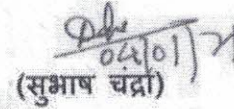 04/01/2
(सुभाष चंद्रा)